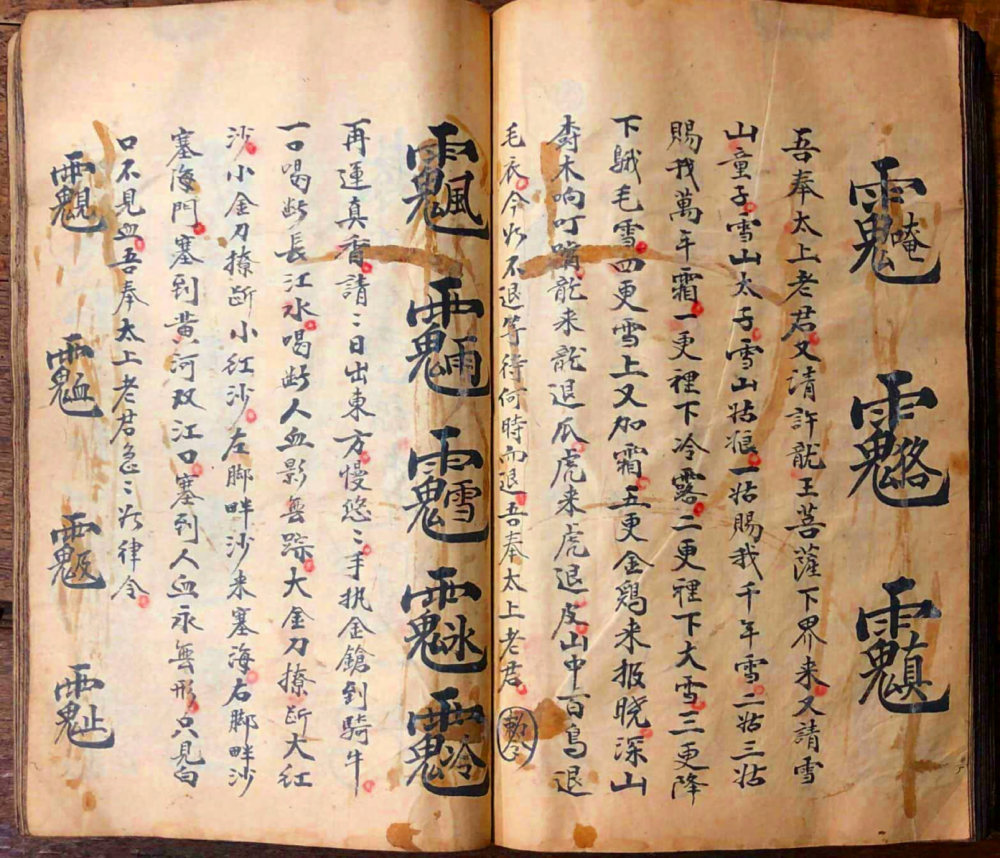 吾奉太上老君又请許龍王菩薩下界来又請雪
山童子雪山太子雪山姑狼一姑賜我千年雪二姑三姑
賜我萬年霜一更裡下冷露二更裡下大雪三更降
下毛雪四更雪上又加霜五更金鷄来报晓深山
木响叮龍来龍退爪虎来虎退皮山中百鳥退
毛衣今不退等待何時而退吾奉太上老君
再運真香請〻日出東方慢悠〻手执金鎗到騎牛
一口喝断長江水喝断人血影無踪大金刀撩断大红
沙小金刀撩断小红沙左脚畔沙来塞海右脚畔沙
塞海門塞到黄河双江口塞到人血永無形只見白
口不見血吾奉太上老君急〻如律令